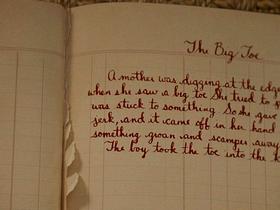 The Big Toe
A mother was digging at the edge
when she saw a big toe She tried to
was stuck to something So she gave
jerk, and it came off in her hand
something groan and scamper away
The boy took the toe into the